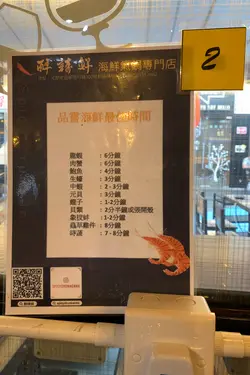 醉辣鮮 海鮮蒸鍋專門店
2
品嘗海鮮最佳時間
龍蝦 : 6分鐘
肉蟹 : 6分鐘
鮑魚 : 4分鐘
生蠔 : 3分鐘
中蝦 : 2 - 3分鐘
元貝 : 3分鐘
蟶子 : 1-2分鐘
貝類 : 2分半鐘或張開殼
象拔蚌 : 1-2分鐘
蟲草雞件 : 8分鐘
時蔬 : 7 - 8分鐘